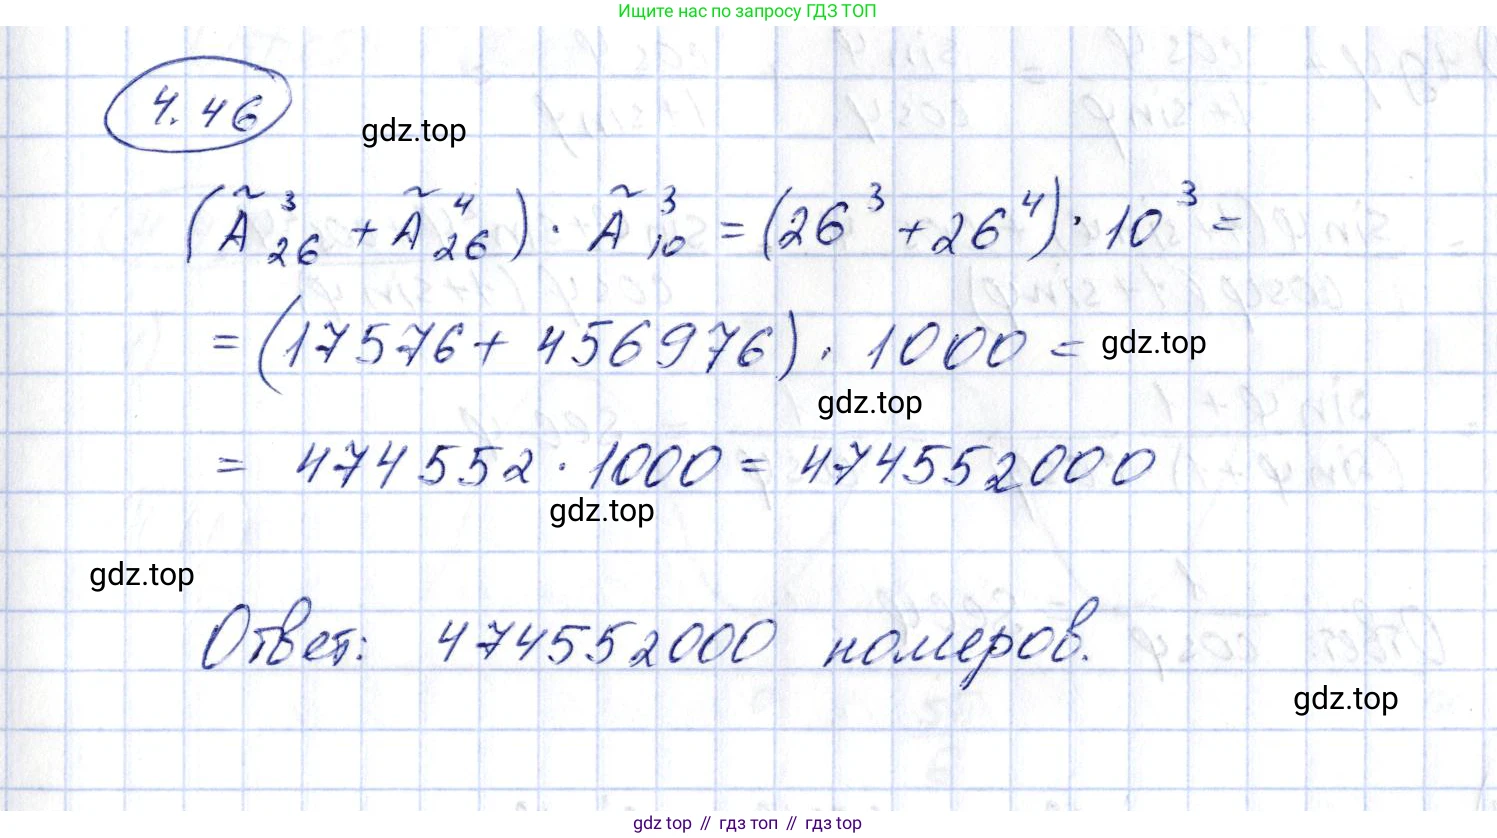 Ищите нас по запросу ГДЗ ТОП
4.46
gdz.top
(Ã³₂₆ + Ã⁴₂₆) · Ã³₁₀ = (26³ + 26⁴) · 10³ =
= (17576 + 456976) · 1000 =
gdz.top
gdz.top
= 474552 · 1000 = 474552000
gdz.top
gdz.top
Ответ: 474552000 номеров.
gdz.top
gdz top // гдз топ // гдз top